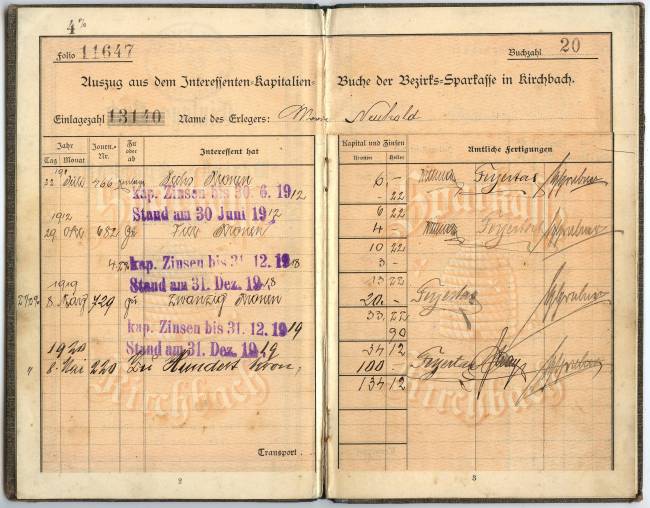 4%
Folio 11647
Buchzahl 20
Auszug aus dem Interessenten-Kapitalien-Buche der Bezirks-Sparkasse in Kirchbach.
Einlagezahl 13140 Name des Erlegers: Neuhold
Jahr Journ.-Nr. Zu oder ab Interessent hat Kapital und Zinsen Amtliche Fertigungen
Tag Monat Kronen Heller
22 466 Sechs Kronen 6 -
kap. Zinsen bis 30. 6. 1912 - 22
Stand am 30 Juni 1912 6 22
1912
29 Okt. 682 Zu Vier Kronen 4 -
10 22
kap. Zinsen bis 31. 12. 1918 3 -
Stand am 31. Dez. 1918 13 22
1919
8 März 729 zu Zwanzig Kronen 20 -
33 22
kap. Zinsen bis 31. 12. 1919 90
Stand am 31. Dez. 1919 34 12
1920
" 8. Mai 220 Zu Hundert Kron, 100 -
134 12
Transport .
2
3
Kirchbach
Kirchbach